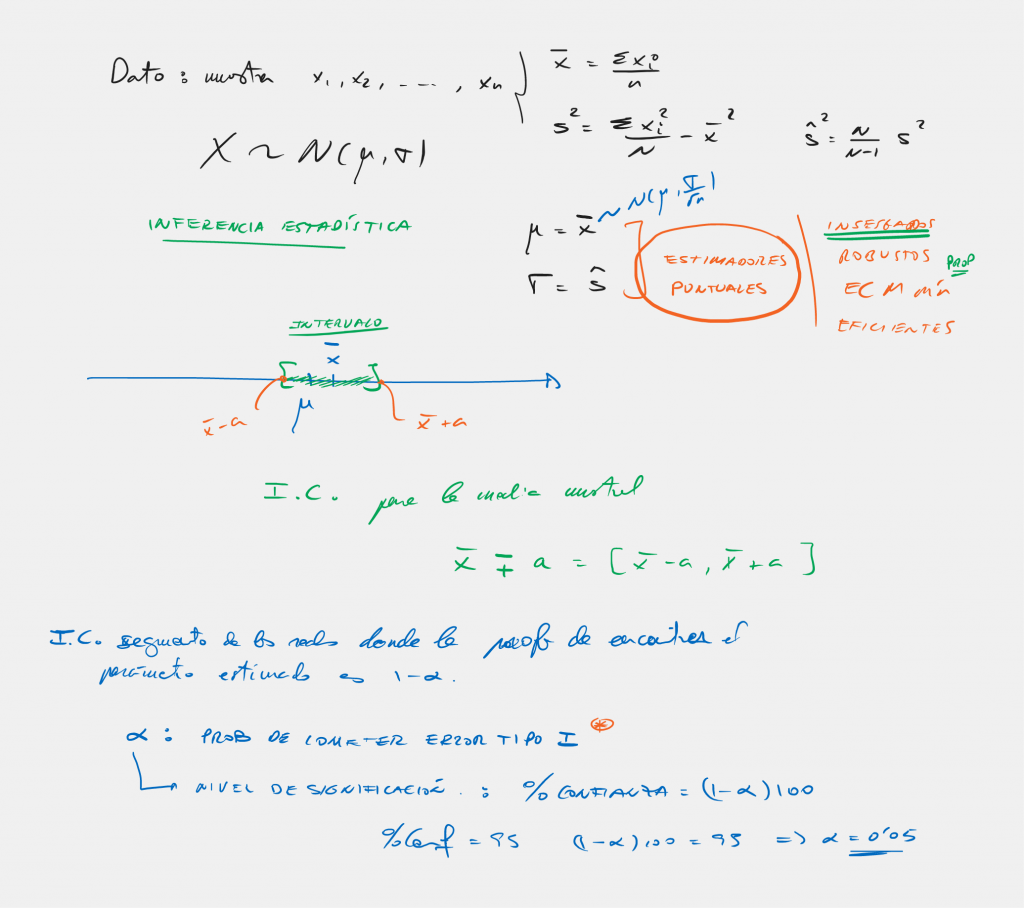 Dato : muestra x₁, x₂, ----, xn } x̄ = Σxi/n
s² = Σxi²/N - x̄² ŝ² = N/(N-1) s²
X ~ N(μ, σ)
x̄ ~ N(μ, σ/√n)
INFERENCIA ESTADÍSTICA
μ = x̄
σ = ŝ
ESTIMADORES
PUNTUALES
INSESGADOS
ROBUSTOS
PROP
ECM mín
EFICIENTES
INTERVALO
x̄
[ ]
μ
x̄-a x̄+a
I.C. para la media muestral
x̄ ∓ a = [x̄-a, x̄+a]
I.C. segmento de los reales donde la prob de encontrar el
parámetro estimado es 1-α.
α : PROB DE COMETER ERROR TIPO I *
NIVEL DE SIGNIFICACIÓN. : % CONFIANZA = (1-α)100
% Conf = 95 (1-α)100 = 95 => α = 0'05